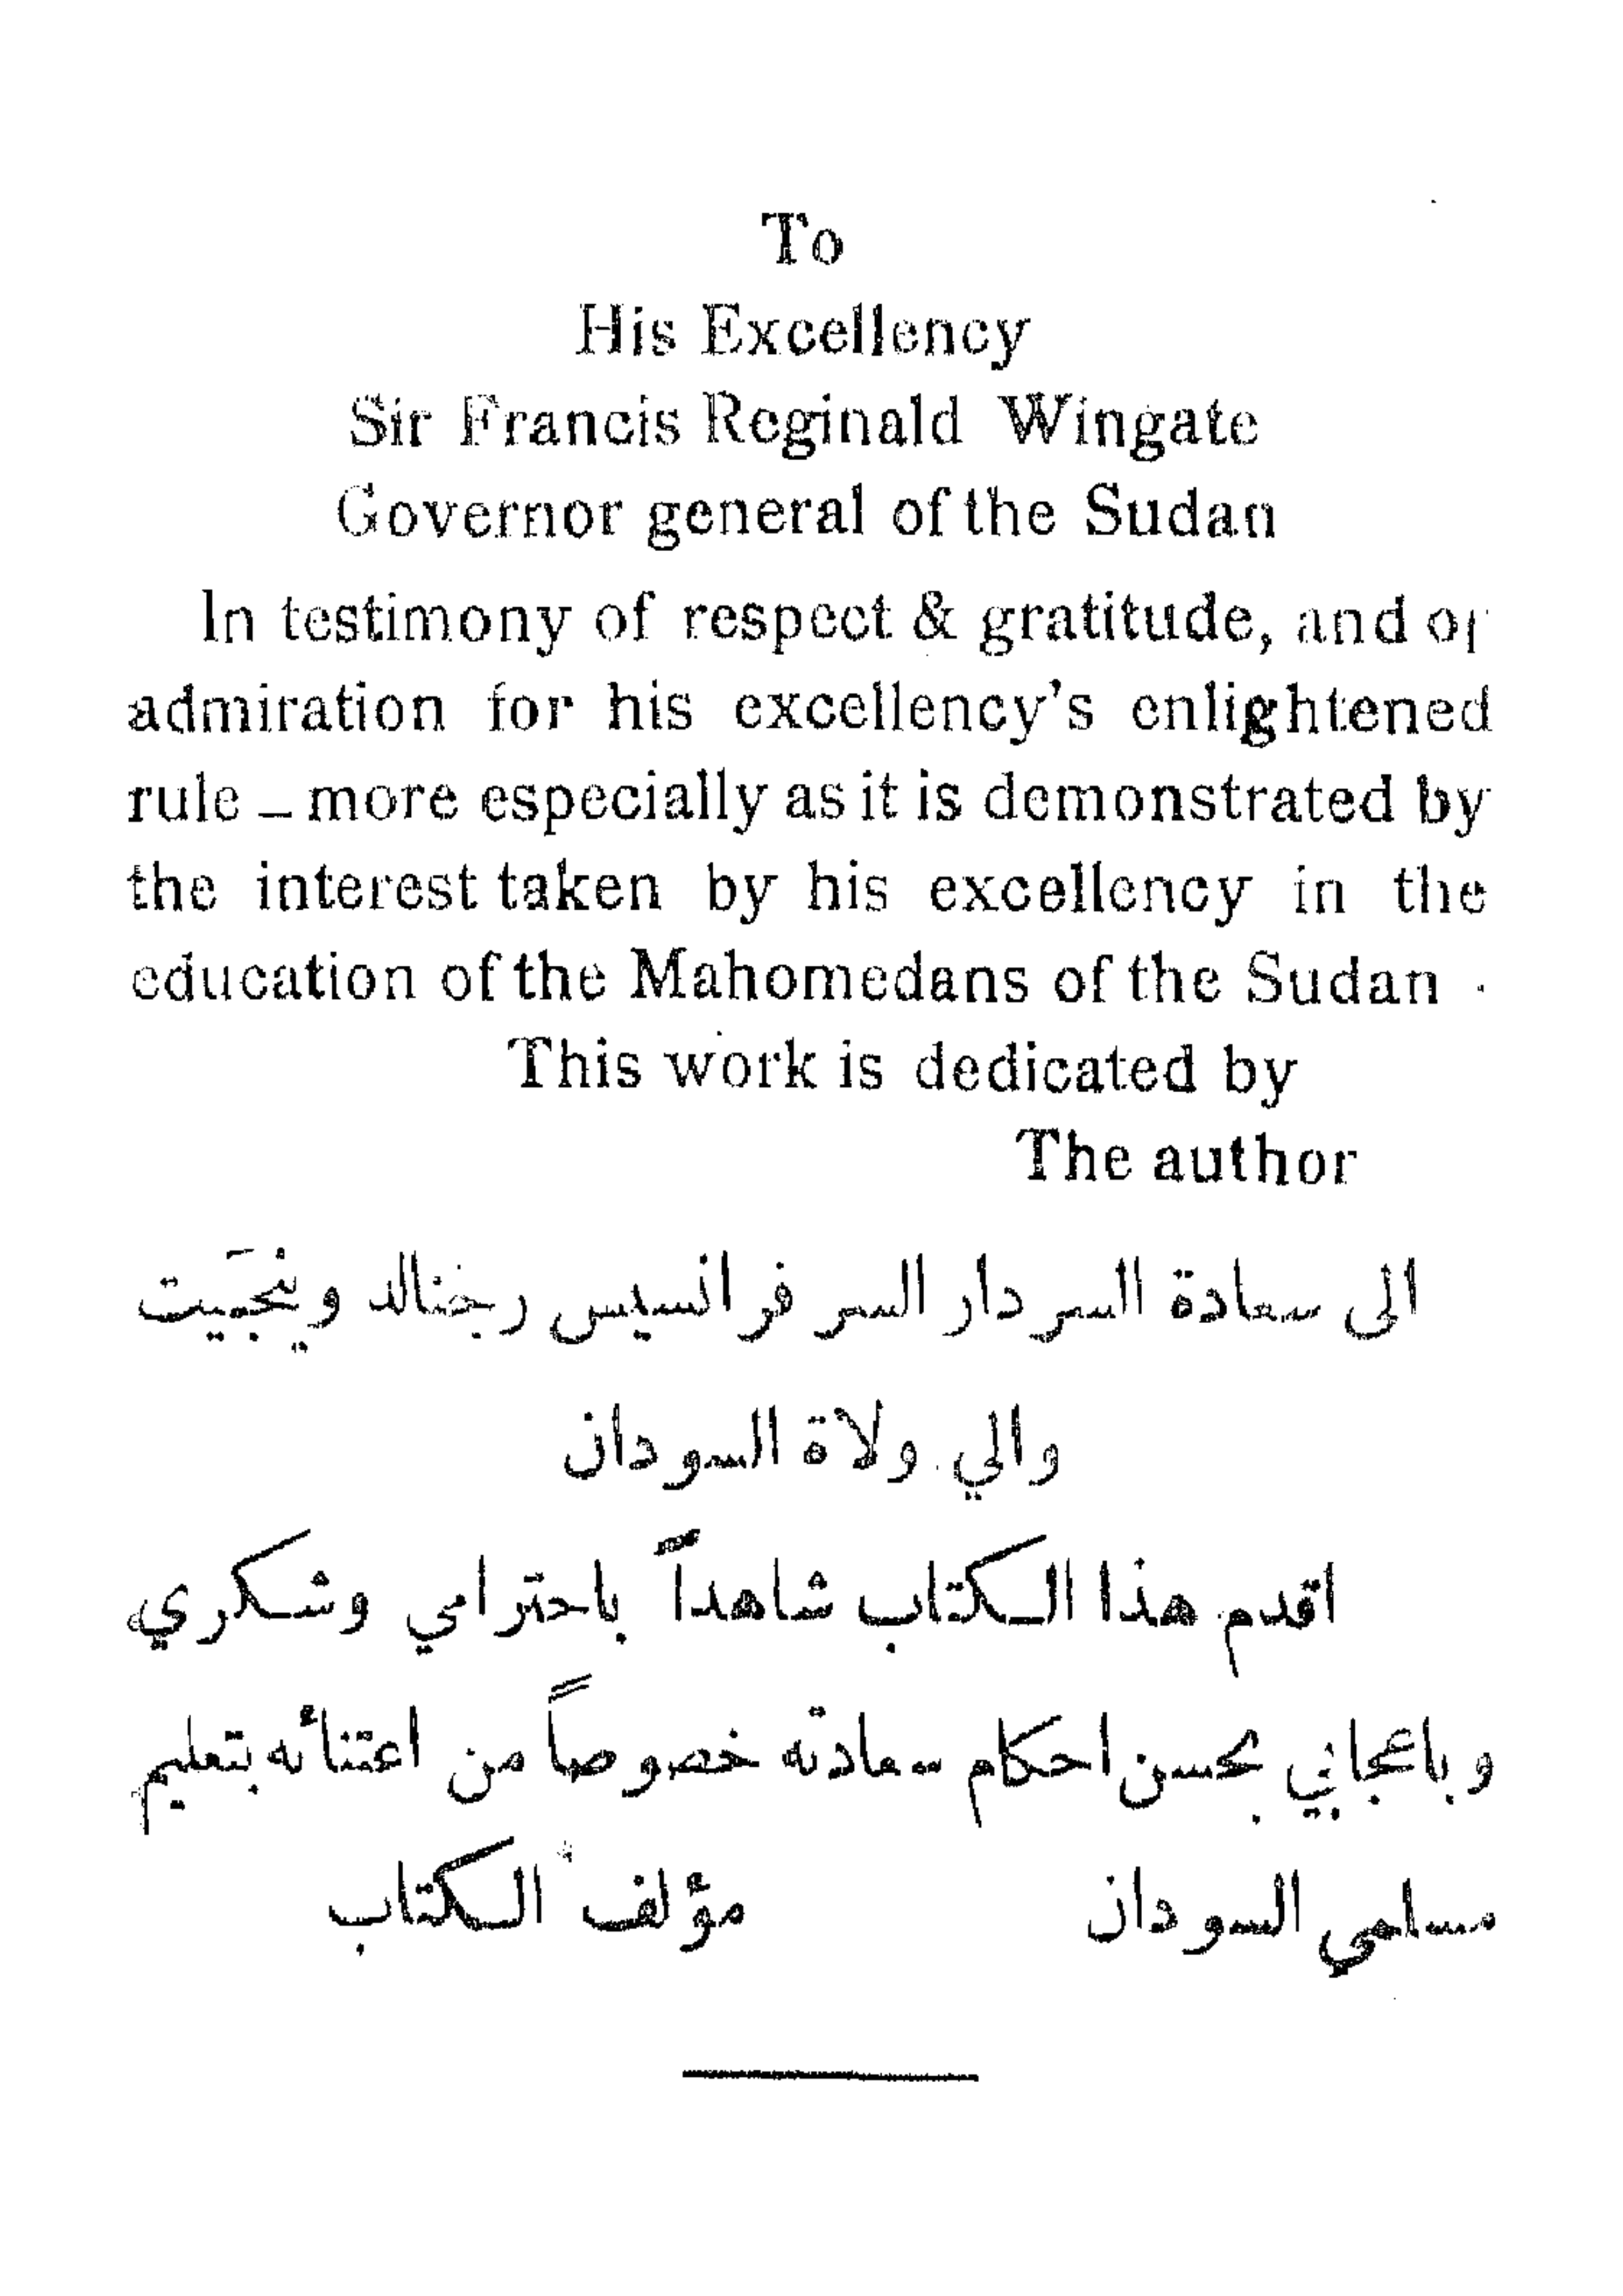 To
His Excellency
Sir Francis Reginald Wingate
Governor general of the Sudan
In testimony of respect & gratitude, and of
admiration for his excellency's enlightened
rule – more especially as it is demonstrated by
the interest taken by his excellency in the
education of the Mahomedans of the Sudan .
This work is dedicated by
The author
الى سعادة السردار السر فرانسيس رجنالد وينجَيت
والي ولاة السودان
اقدم هذا الكتاب شاهداً باحترامي وشكري
وباعجابي بحسن احكام سعادته خصوصاً من اعتنائه بتعليم
مسلمي السودان مؤلف الكتاب